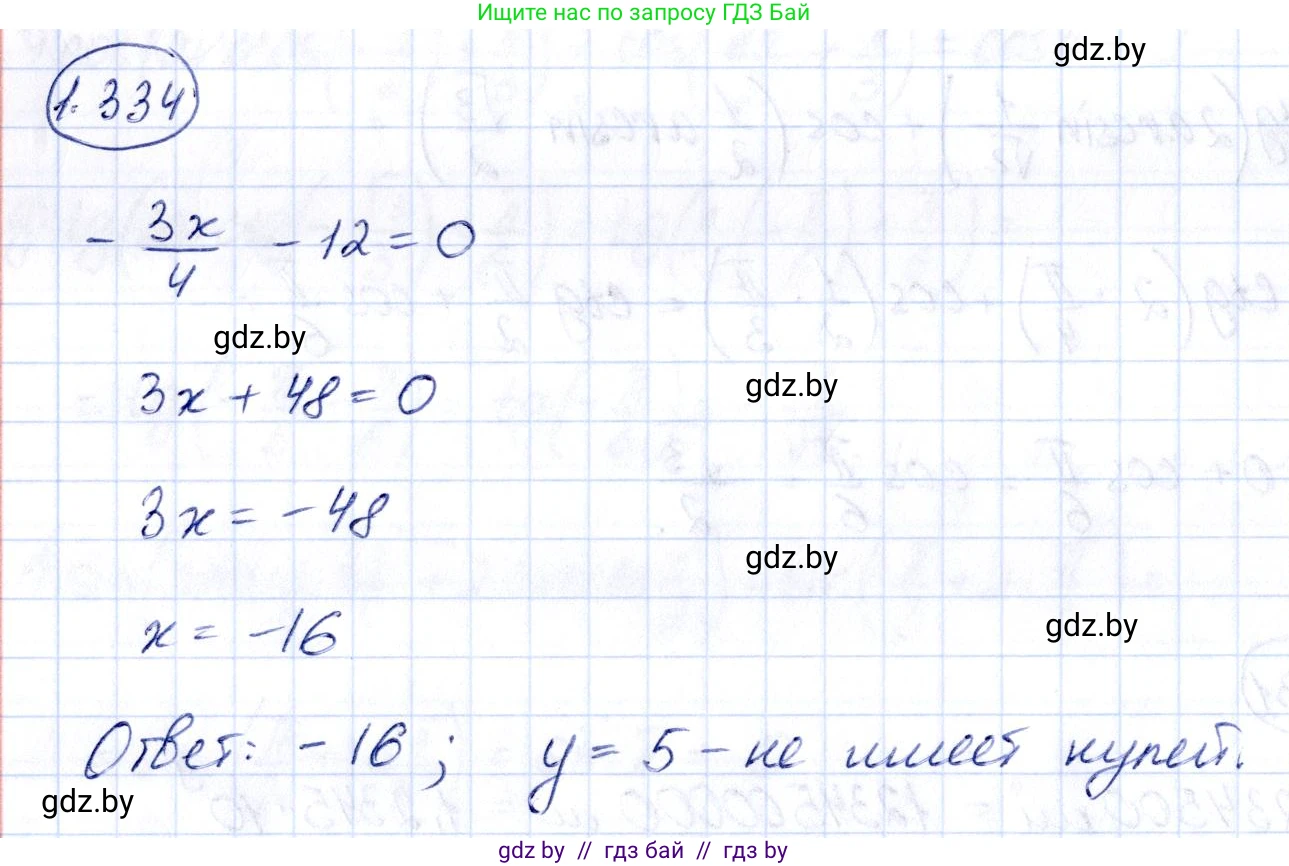 Ищите нас по запросу ГДЗ Бай
gdz.by
1.334
- 3x/4 - 12 = 0
gdz.by
3x + 48 = 0
gdz.by
3x = -48
gdz.by
x = -16
gdz.by
Ответ: -16; y = 5 - не имеет нулей.
gdz.by
gdz.by // гдз бай // гдз by